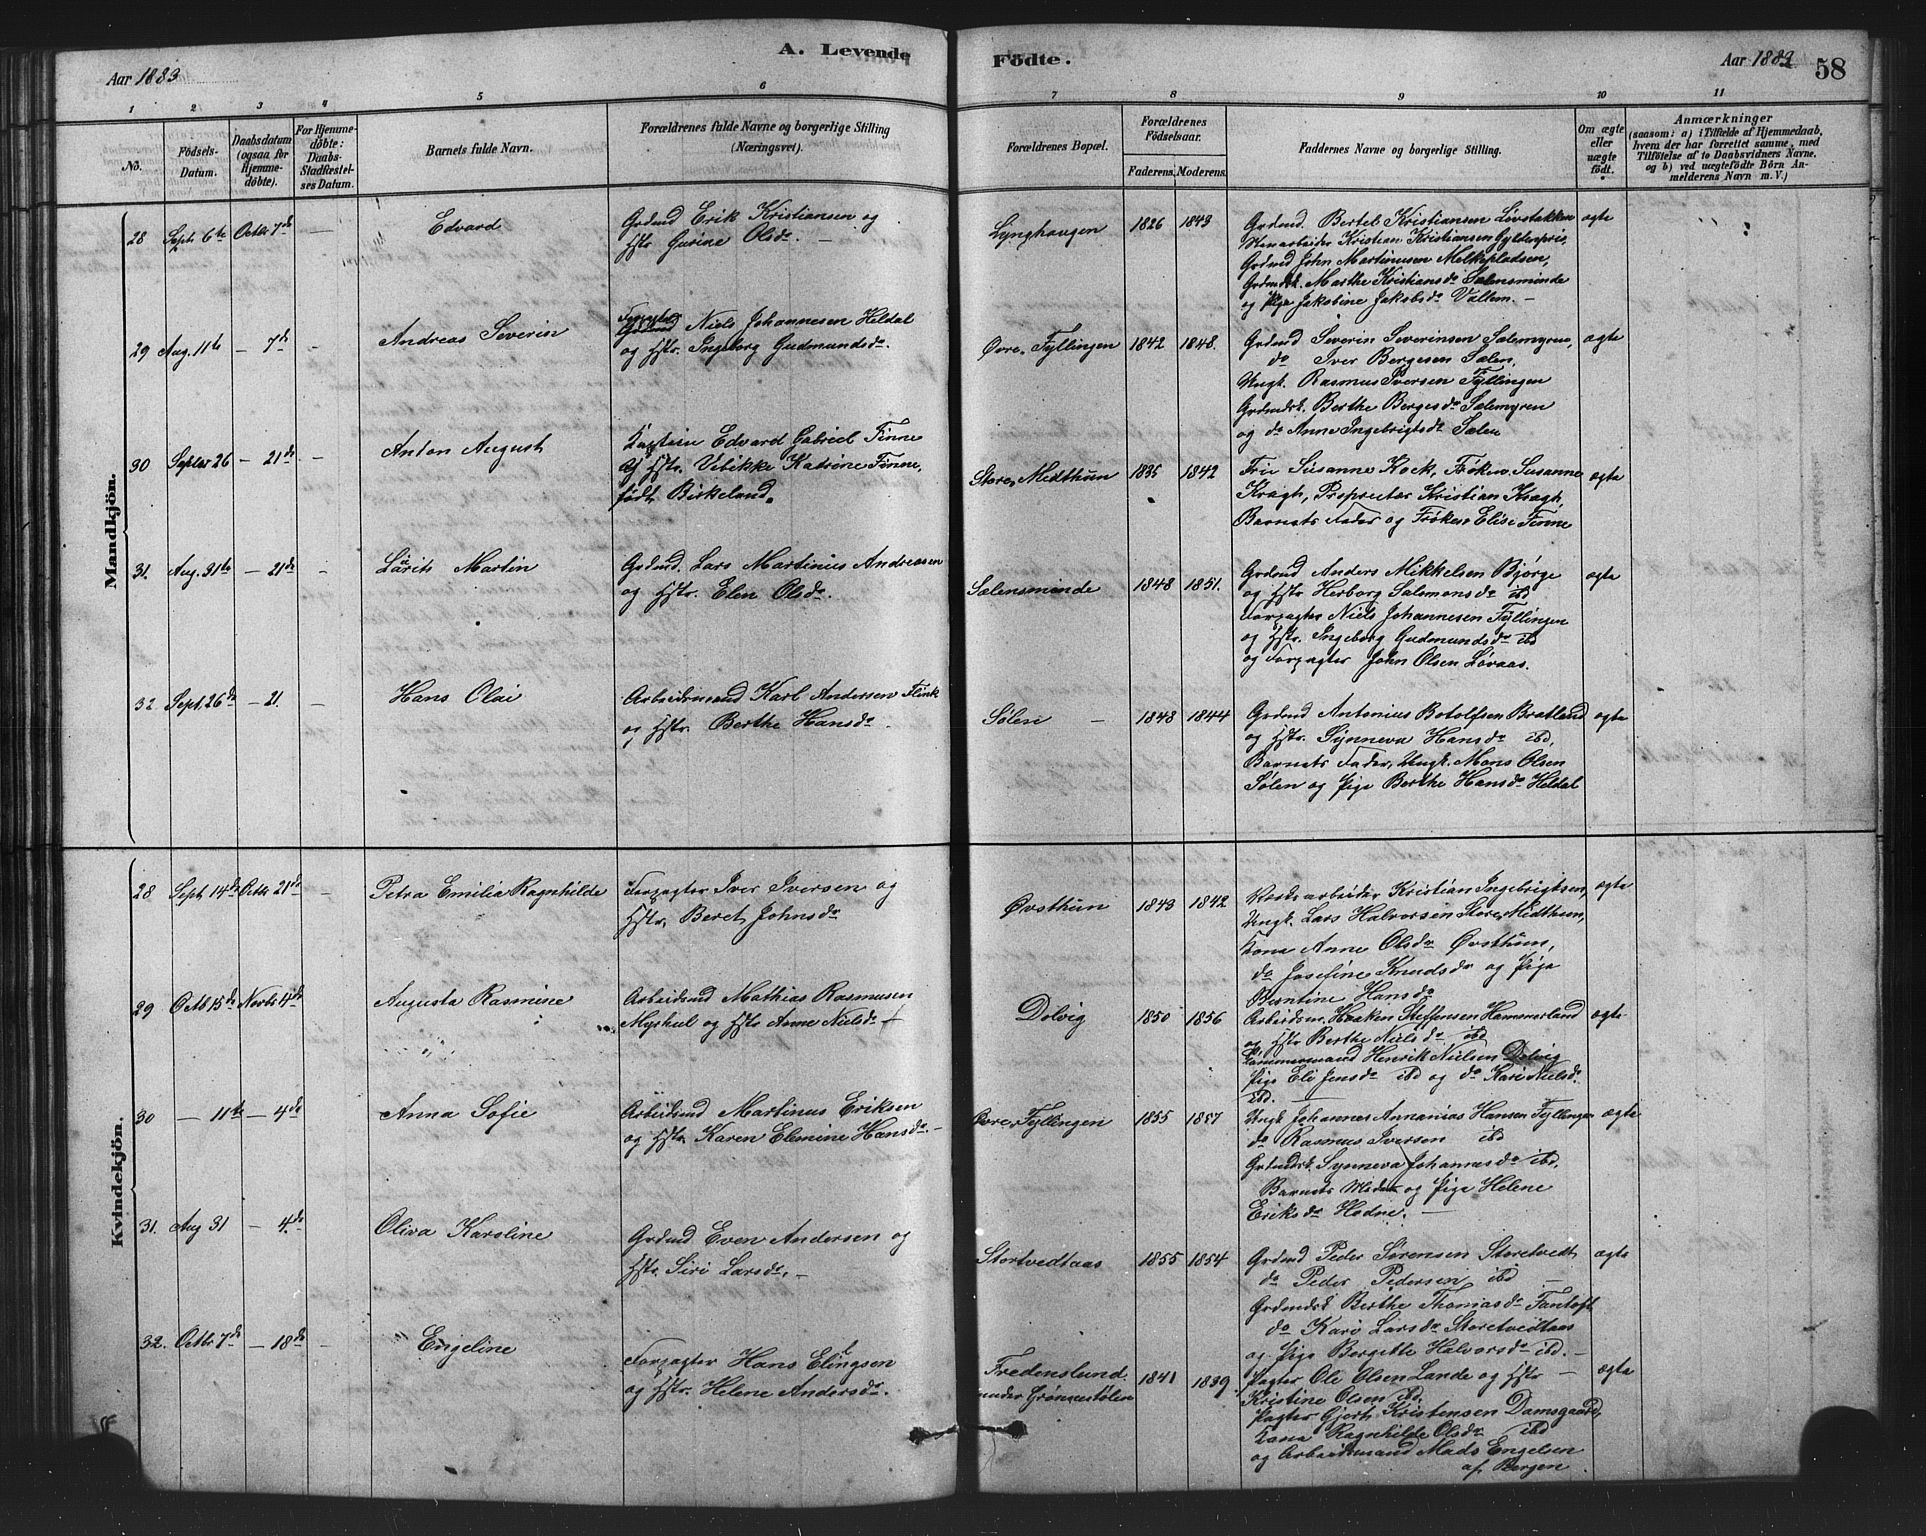 Aar 1883
A. Levende
Födte.
Aar 1883
58
1 2 3 4 5 6 7 8 9 10 11
No.
Födsels-Datum.
Daabsdatum (ogsaa for Hjemmedöbte).
For Hjemmedöbte: Daabs-Stadfæstelses Datum.
Barnets fulde Navn.
Forældrenes fulde Navne og borgerlige Stilling (Næringsvei).
Forældrenes Bopæl.
Forældrenes Födselsaar.
Faderens. Moderens.
Faddernes Navne og borgerlige Stilling.
Om ægte eller uægte födt.
Anmærkninger
(saasom: a) i Tilfælde af Hjemmedaab,
hvem der har forrettet samme, med
Tilföielse af to Daabsvidners Navne,
og b) ved uægtefödte Börn Anmelderens Navn m. V.)
Mandkjön.
28 Sept 6te Octbr 7de — Edvard
Grdmd Erik Kristiansen og
Hstr Gurine Olsdr. —
Lynghaugen 1826 1843
Grdmd. Bertel Kristiansen Løvstakken
Kristian Kristiansen Gyldenpris,
Grdmd John Martinusen Melkepladsen,
Grdmdsk. Marthe Kristiansdr Sælensminde
og Pige Jakobine Jakobsdr Vallem. —
ægte
29 Aug. 11te — 7de — Andreas Severin
Forpagter
Grdmd Niels Johannesen Heldal
og Hstr. Ingeborg Gudmundsdr.
Øvre Fyllingen 1842 1848.
Grdmd Severin Severinsen Sælemyren,
do Iver Bergesen Sælen,
Ungk. Rasmus Iversen Fyllingen
Grdmdsk. Berthe Bergesdr Sælemyren
og do Anne Ingebrigtsdr Sælen
ægte
30 Septbr 26 — 21de — Anton August
Kaptein Edvard Gabriel Finne
og Hstr. Vibikke Katrine Finne,
født Birkeland.
Store Midthun 1835 1842
Frue Susanne Kock, Frøken Susanne
Kragh, Proprietær Kristian Kragh,
Barnets Fader og Frøken Elise Finne
ægte
31. Aug. 31te — 21de — Lauritz Martin
Grdmd. Lars Martinius Andreasen
og Hstr. Elen Olsdr.
Sælensminde 1848 1851.
Grdmd Anders Mikkelsen Bjørge
og Hstr Herborg Salomonsdr ibd
Forpagter Niels Johannesen Fyllingen
og Hstr. Ingeborg Gudmundsdr ibd
og Forpagter John Olsen Løvaas.
ægte
32 Sept. 26de — 21. — Hans Olai
Arbeidsmand Karl Andersen Flink
og Hstr. Berthe Hansdr
Sølen — 1848 1844
Grdmd Antonius Botolfsen Bratland
og Hstr. Synneva Hansdr ibd,
Barnets Fader, Ungk. Mons Olsen
Sølen og Pige Berthe Hansdr Heldal
ægte
Kvindekjön.
28 Sept 14de Octbr 21de — Petra Emilia Ragnhilde
Forpagter Iver Iversen og
Hstr. Beret Johnsdr
Øvsthun 1843 1842
Kristian Ingebrigtsen,
Ungk. Lars Halvorsen Store Midthun,
Kona Anne Olsdr Øvsthun,
do Josefine Knudsdr og Pige
Berntine Hansdr
ægte
29 Octb 15de Novbr 4de Augusta Rasmine
Arbeidsmd Mathias Rasmusen
Myshul og Hstr Anne Nielsdr —
Dolvig 1850 1856
Arbeidsm. Haaken Steffensen Hammerland
og Hstr Berthe Nielsdr ibd
Henrik Nielsen Dolvig
Pige Eli Jensdr ibd og do Kari Nielsdr
ibd. —
ægte
30 — 11te — 4de Anna Sofie
Arbeidsmd Martinus Eriksen
og Hstr. Karen Elemine Hansdr. —
Øvre Fyllingen 1855 1857
Ungk Johannes Annanias Hansen Fyllingen
do Rasmus Iversen ibd
Grdmdsk. Synneva Johannesdr ibd,
Barnets Moder og Pige Helene
Eriksdr Hodne. —
ægte
31. Aug 31 — 4de Oliva Karoline
Grdmd Even Andersen og
Hstr. Siri Larsdr. —
Stortvedtaas 1855 1854
Grdmd Peder Sørensen Storetvedt
do Peder Pedersen ibd —
Grdmdsk Berthe Thomasdr Fantoft
do Kari Larsdr Storetvedtaas
og Pige Bergitte Halvorsdr ibd. —
ægte
32. Octbr 7de — 18de — Engeline
Forpagter Hans Elingsen
og Hstr. Helene Andersdr.
Fredenslund 1841 1839
under Grønnestølen
Pagter Ole Olsen Lande og Hstr —
Kristine Olsen ibd.
Pagter Gjert Kristensen Damsgaard,
Kona Ragnhilde Olsdr ibd
og Arbeidsmand Mads Engelsen
af Bergen
ægte